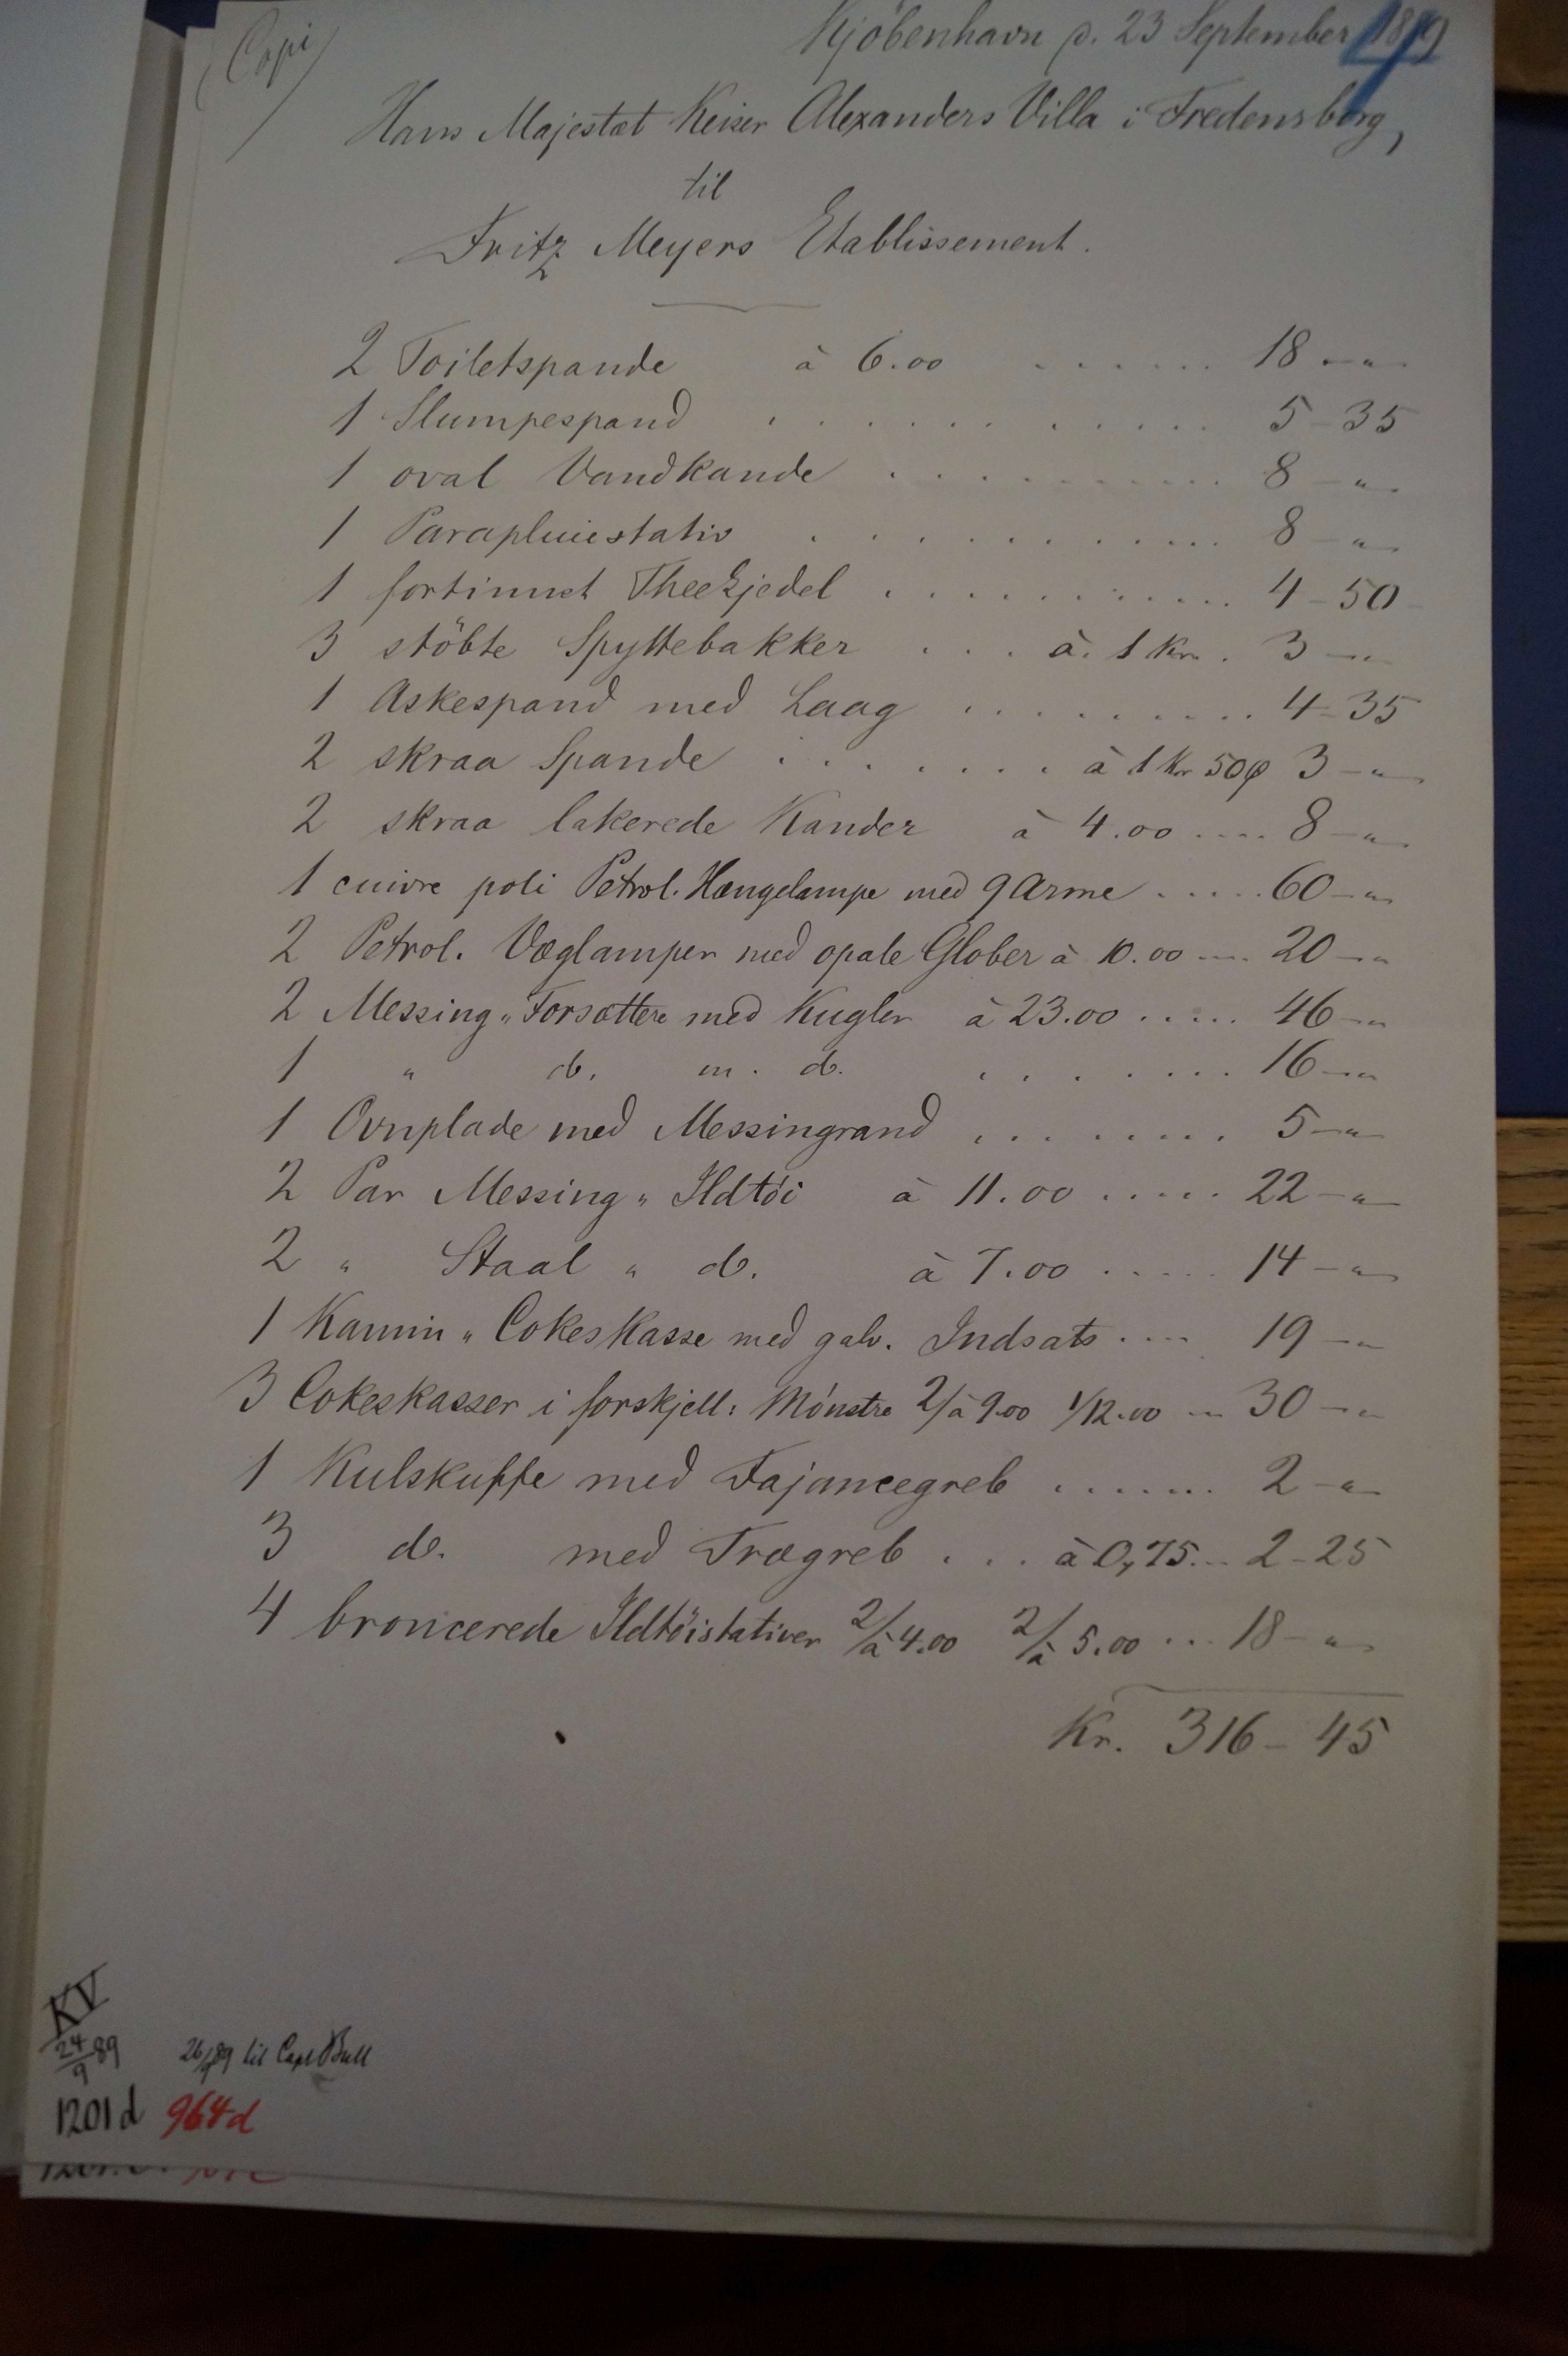 (Copi)
Kjöbenhavn d. 23 September 1889
4
Hans Majestæt Keiser Alexanders Villa i Fredensborg,
til
Fritz Meyers Etablissement.
2 Toiletspande à 6.00 ...... 18 - "
1 Slumpespand ............ 5 - 35
1 oval Vandkande .......... 8 - "
1 Parapluiestativ ............ 8 - "
1 fortinnet Theekjedel ............ 4 - 50
3 stöbte Spyttebakker ... à. 1 Kr. 3 - "
1 Askespand med Laag .......... 4 - 35
2 skraa Spande ........ à 1 Kr 50 Ø 3 - "
2 skraa lakerede Kander à 4.00 .... 8 - "
1 cuivre poli Petrol. Hængelampe med 9 Arme ..... 60 - "
2 Petrol. Væglamper med opale Glober à 10.00 .... 20 - "
2 Messing " Forsættere med Kugler à 23.00 ..... 46 - "
1 " do. m. do. ........ 16 - "
1 Ovnplade med Messingrand ........ 5 - "
2 Par Messing " Ildtöi à 11.00 ..... 22 - "
2 " Staal " do. à 7.00 ..... 14 - "
1 Kamin " Cokeskasse med galv. Indsats .... 19 - "
3 Cokeskasser i forskjell: Mönstre 2/à 9.00 1/12.00 ... 30 - "
1 Kulskuffe med Fajancegreb ....... 2 - "
3 do. med Trægreb ... à 0,75 ... 2 - 25
4 broncerede Ildtöistativer 2/à 4.00 2/à 5.00 ... 18 - "
Kr. 316 - 45
KV
24/9 89 26/9 89 til Capt Bull
1201 d 964 d